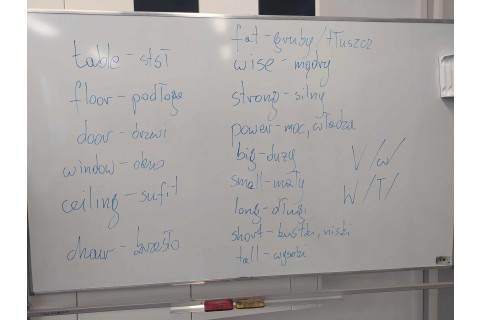 table - stół
floor - podłoga
door - drzwi
window - okno
ceiling - sufit
chair - krzesło
fat - gruby / tłuszcz
wise - mądry
strong - silny
power - moc, władza
big - duży
small - mały
long - długi
short - niski
tall - wysoki
V /w/
W /